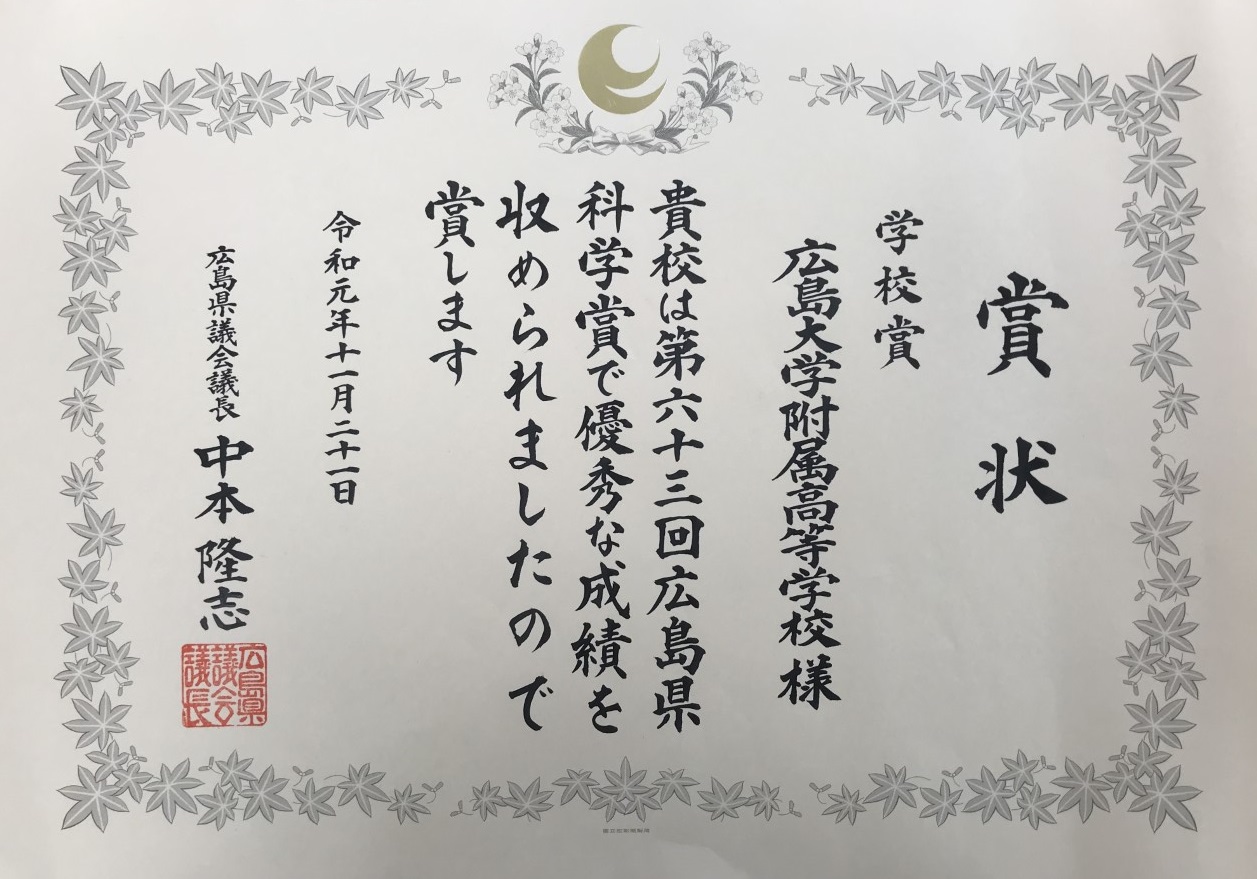 賞状
学校賞
広島大学附属高等学校様
貴校は第六十三回広島県
科学賞で優秀な成績を
収められましたので
賞します
令和元年十一月二十一日
広島県議会議長 中本隆志
広島県
議会
議長